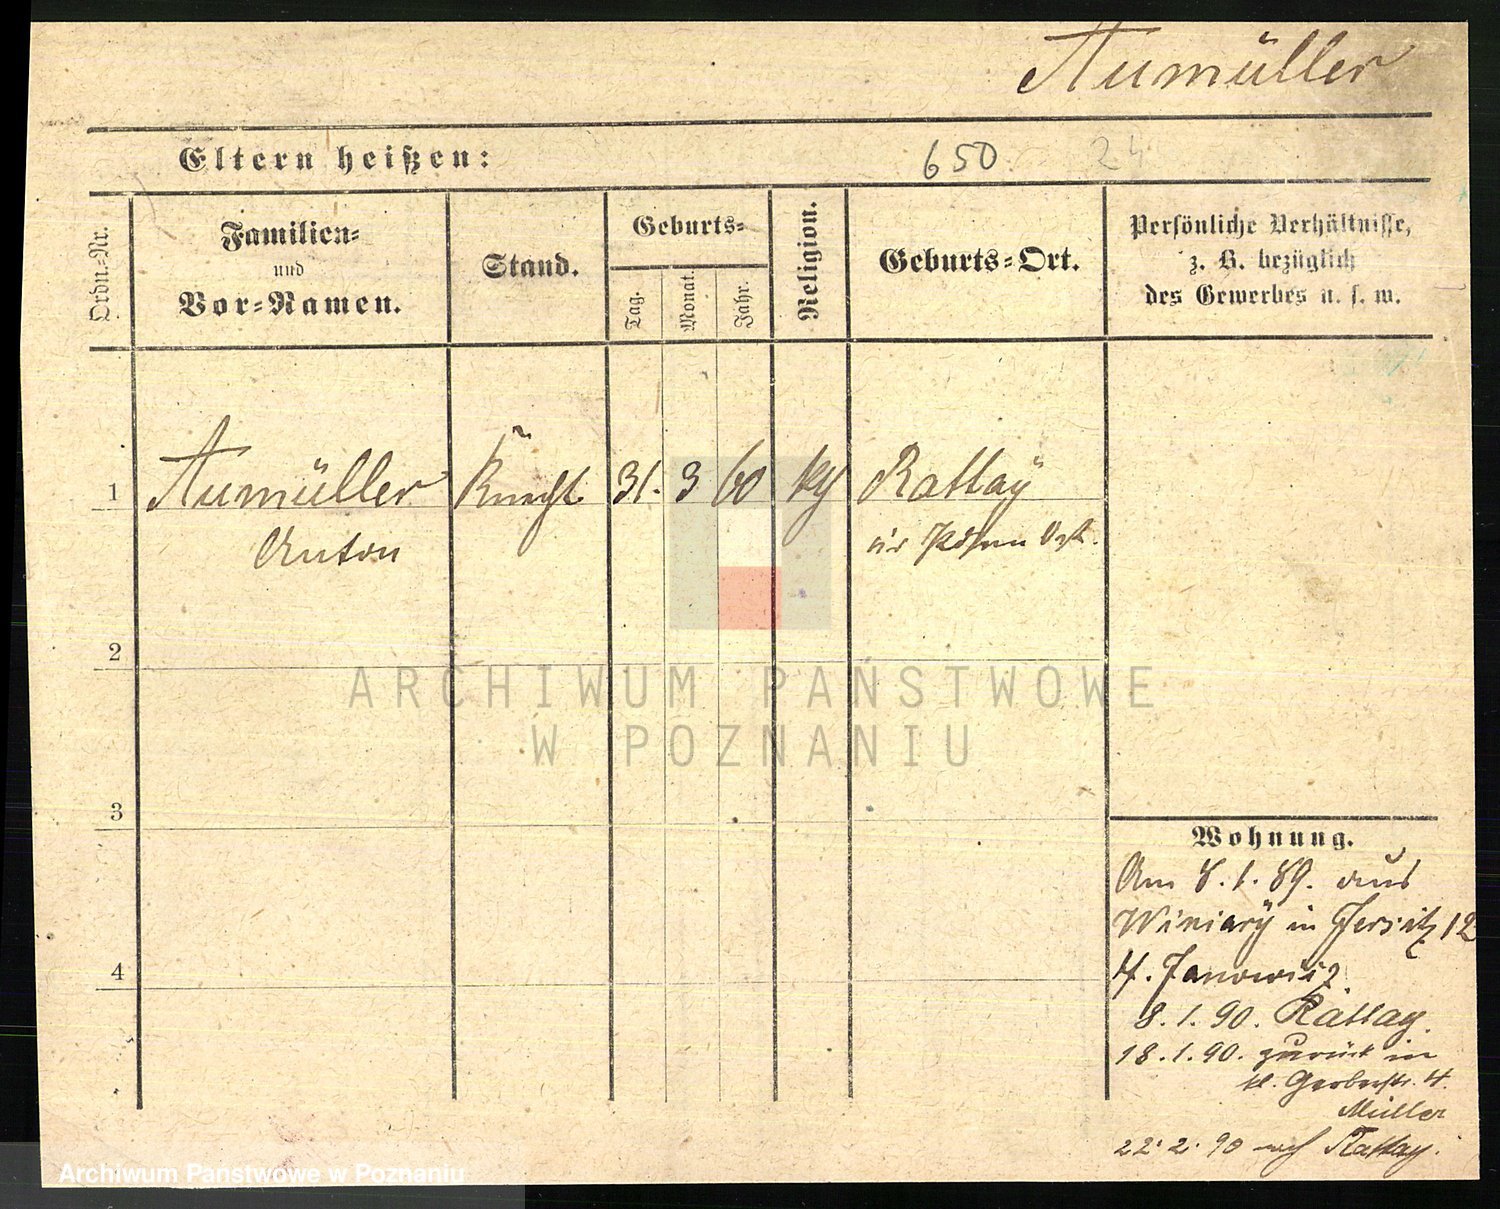 Aumüller
Eltern heißen:
650
24
Ordn.-Nr.
Familien-
und
Vor-Namen.
Stand.
Geburts-
Tag.
Monat.
Jahr.
Religion.
Geburts-Ort.
Persönliche Verhältnisse,
z. B. bezüglich
des Gewerbes u. s. w.
1 Aumüller Knecht 31. 3 60 kth Rattaÿ
Anton Kr Posen Ost.
2
3
4
Wohnung.
Am 8.1.89. aus
Winiarÿ in Jersitz 12
b. Janowicz
8.1.90. Rattay.
18.1.90. zurück in
kl. Gerberstr. 4.
Müller
22.2.90 nach Rattay.
ARCHIWUM PAŃSTWOWE
W POZNANIU
Archiwum Państwowe w Poznaniu